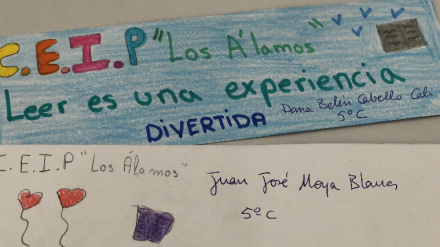 C.E.I.P "Los Álamos"
Leer es una experiencia
DiVERTIDA
Dana Belén Cabello Cali
5º C
C.E.I.P "Los Álamos"
Juan José Moya Blanes
5º C